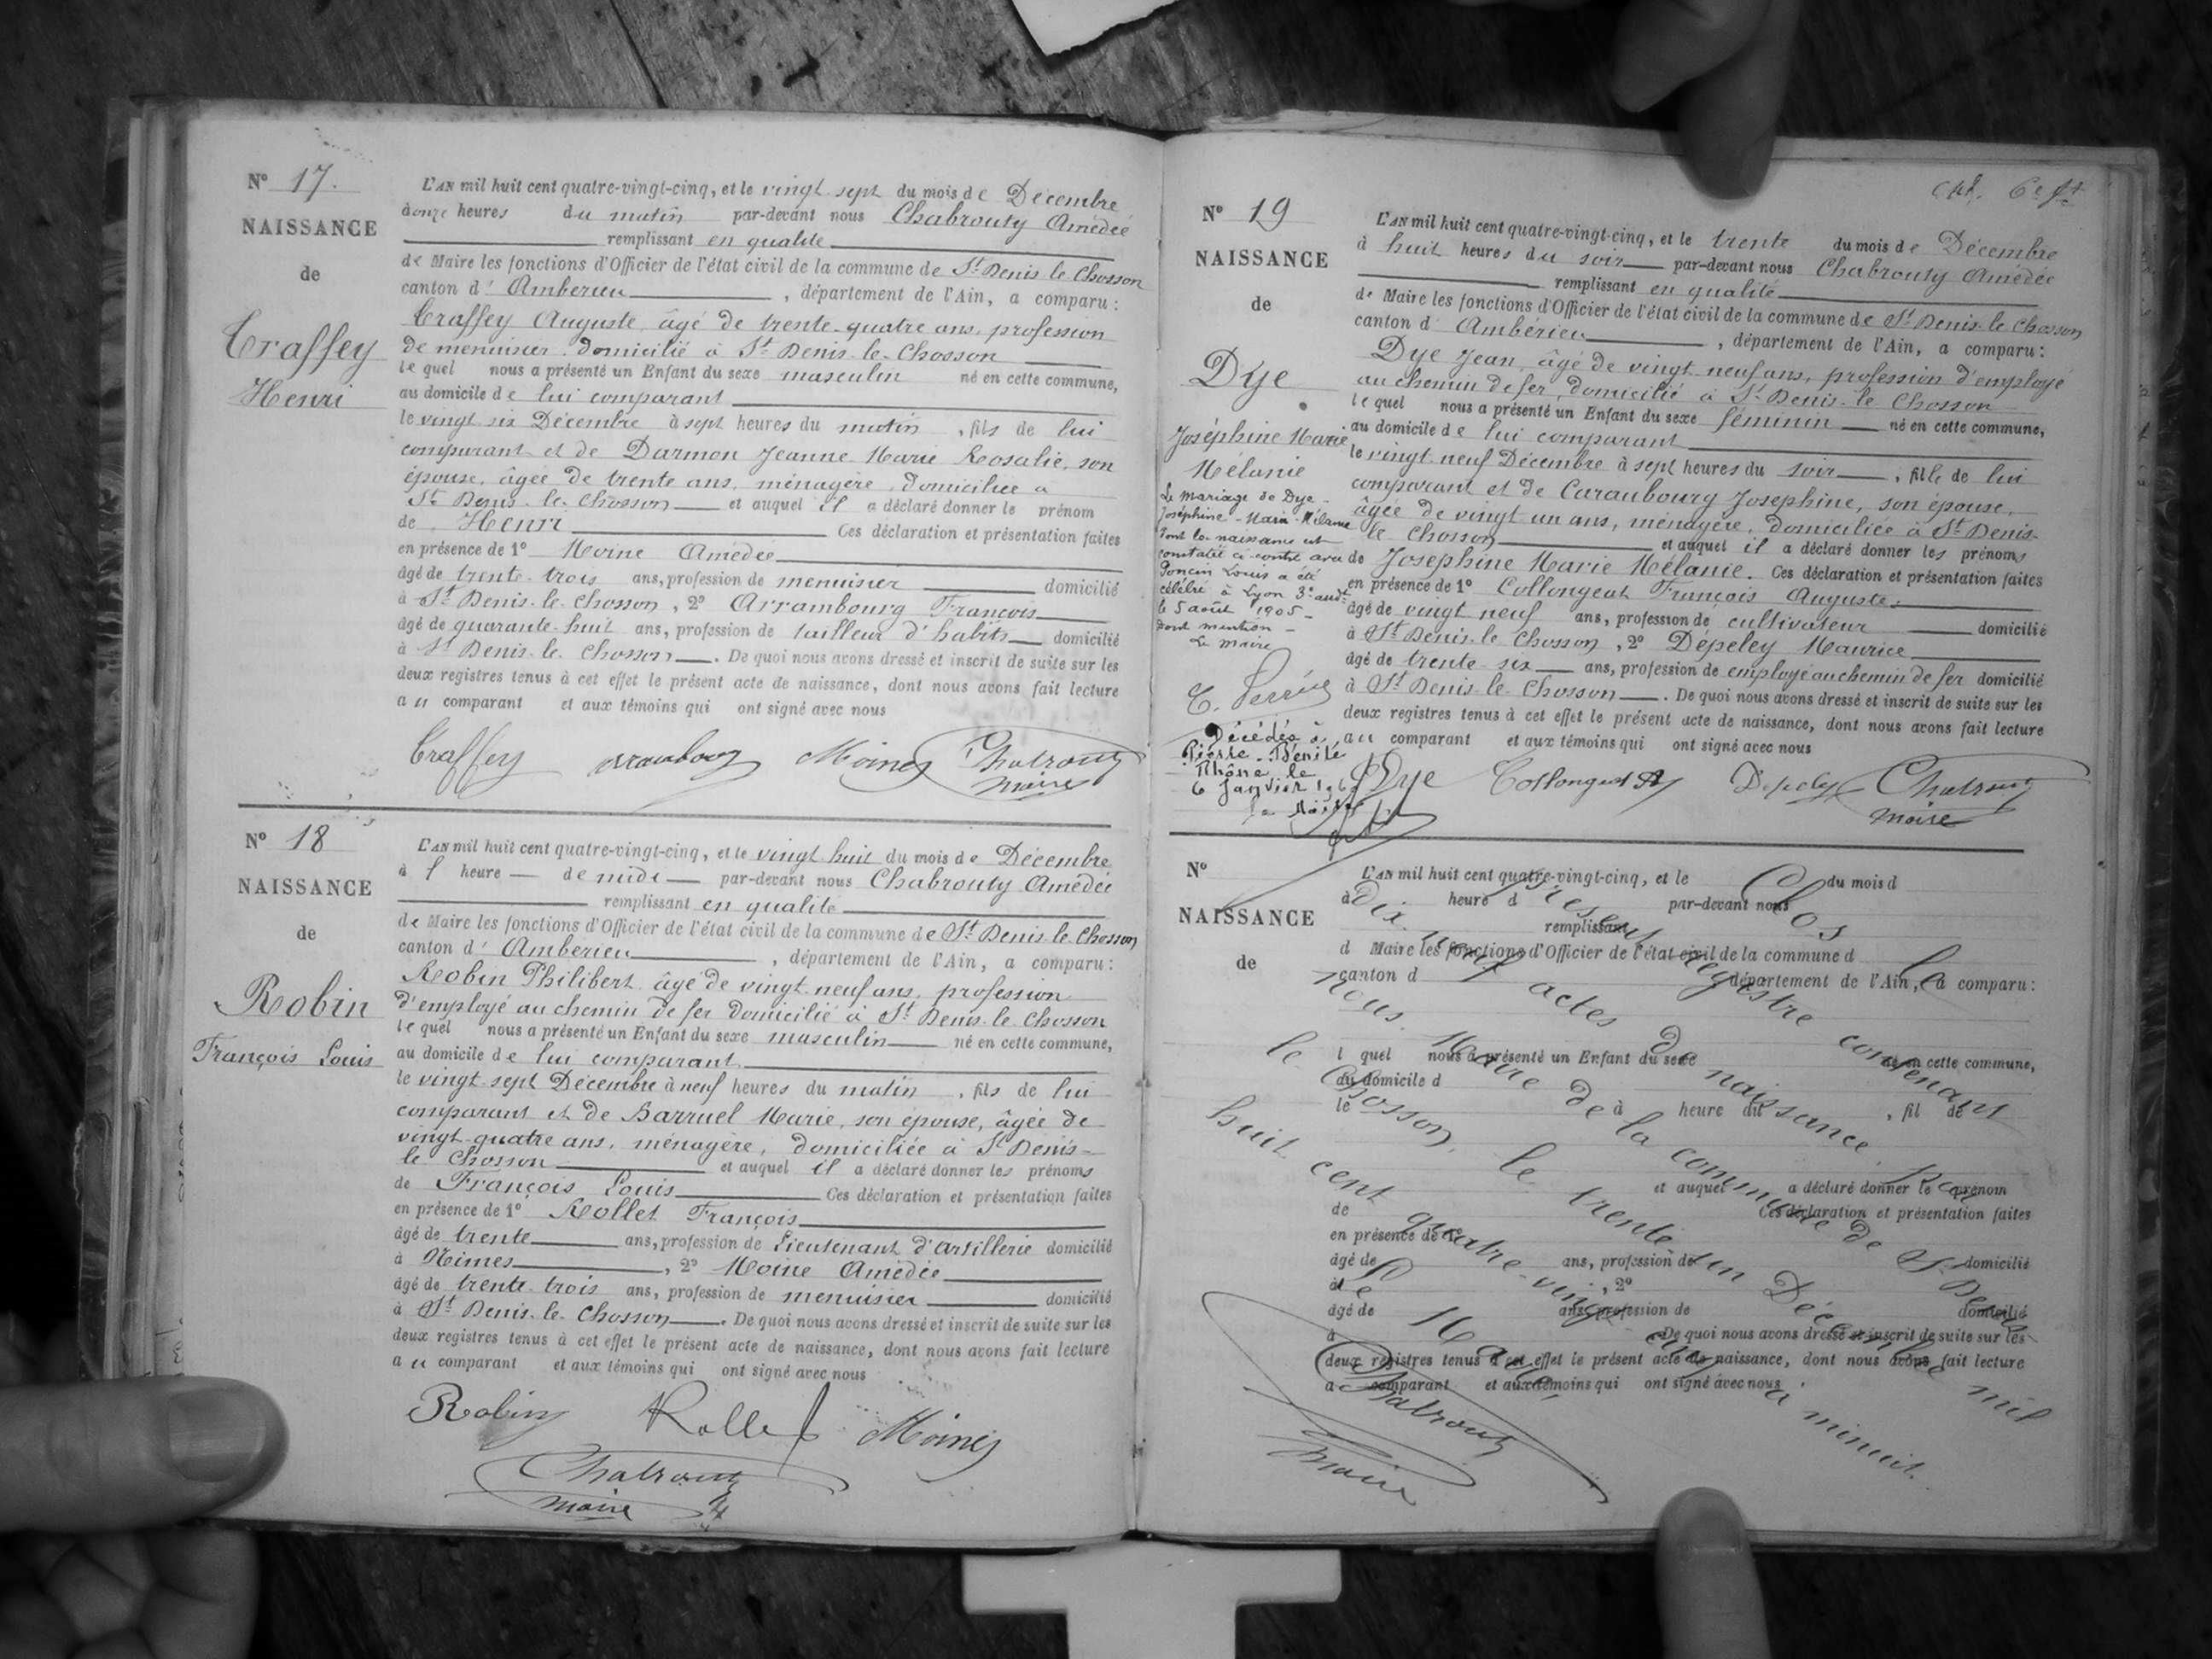 N° 17.
NAISSANCE
de
Traffey
Henri
L'AN mil huit cent quatre-vingt-cinq, et le vingt sept du mois de Décembre
à onze heures du matin par-devant nous Chabrouty Amédée
remplissant en qualité
de Maire les fonctions d'Officier de l'état civil de la commune de St Denis le Chosson
canton d'Amberieu, département de l'Ain, a comparu :
Traffey Auguste, âgé de trente-quatre ans, profession
de menuisier, domicilié à St Denis-le-Chosson
lequel nous a présenté un Enfant du sexe masculin né en cette commune,
au domicile de lui comparant
le vingt six Décembre à sept heures du matin, fils de lui
comparant et de Darmon Jeanne Marie Rosalie, son
épouse, âgée de trente ans, ménagère, domiciliée à
St Denis-le-Chosson et auquel il a déclaré donner le prénom
de Henri Ces déclaration et présentation faites
en présence de 1° Moine Amédée
âgé de trente-trois ans, profession de menuisier domicilié
à St Denis-le-Chosson, 2° Arrambourg François
âgé de quarante-huit ans, profession de tailleur d'habits domicilié
à St Denis-le-Chosson. De quoi nous avons dressé et inscrit de suite sur les
deux registres tenus à cet effet le présent acte de naissance, dont nous avons fait lecture
au comparant et aux témoins qui ont signé avec nous
Traffey Moine Chabrouty
maire
N° 18
NAISSANCE
de
Robin
François Louis
L'AN mil huit cent quatre-vingt-cinq, et le vingt huit du mois de Décembre
à 1 heure de midi par-devant nous Chabrouty Amédée
remplissant en qualité
de Maire les fonctions d'Officier de l'état civil de la commune de St Denis-le-Chosson
canton d'Amberieu, département de l'Ain, a comparu :
Robin Philibert âgé de vingt neuf ans, profession
d'employé au chemin de fer domicilié à St Denis-le-Chosson
lequel nous a présenté un Enfant du sexe masculin né en cette commune,
au domicile de lui comparant
le vingt-sept Décembre à neuf heures du matin, fils de lui
comparant et de Barruel Marie, son épouse, âgée de
vingt-quatre ans, ménagère, domiciliée à St Denis-
le Chosson et auquel il a déclaré donner les prénoms
de François Louis Ces déclaration et présentation faites
en présence de 1° Rollet François
âgé de trente ans, profession de Lieutenant d'artillerie domicilié
à Nimes, 2° Moine Amédée
âgé de trente trois ans, profession de menuisier domicilié
à St Denis-le-Chosson. De quoi nous avons dressé et inscrit de suite sur les
deux registres tenus à cet effet le présent acte de naissance, dont nous avons fait lecture
au comparant et aux témoins qui ont signé avec nous
Robin Rollet Moine
Chabrouty
maire
N° 19
NAISSANCE
de
Dye
Joséphine Marie
Mélanie
Le mariage de Dye
Joséphine-Marie-Mélanie
dont la naissance est
constatée ci-contre avec
Poncin Louis a été
célébré à Lyon 3e arrdt
le 5 août 1905
dont mention
Le maire
Décédée à
Pierre-Bénite
Rhône le
6 Janvier
Le Maire
L'AN mil huit cent quatre-vingt-cinq, et le trente du mois de Décembre
à huit heures du soir par-devant nous Chabrouty Amédée
remplissant en qualité
de Maire les fonctions d'Officier de l'état civil de la commune de St Denis-le-Chosson
canton d'Ambérieu, département de l'Ain, a comparu :
Dye Jean, âgé de vingt-neuf ans, profession d'employé
au chemin de fer, domicilié à St Denis-le Chosson
lequel nous a présenté un Enfant du sexe féminin né en cette commune,
au domicile de lui comparant
le vingt-neuf Décembre à sept heures du soir, fille de lui
comparant et de Caraubourg Josephine, son épouse,
âgée de vingt un ans, ménagère, domiciliée à St Denis-
le Chosson et auquel il a déclaré donner les prénoms
de Josephine Marie Mélanie. Ces déclaration et présentation faites
en présence de 1° Collongeat François Auguste
âgé de vingt neuf ans, profession de cultivateur domicilié
à St Denis-le Chosson, 2° Dépeley Maurice
âgé de trente-six ans, profession de employé au chemin de fer domicilié
à St Denis-le-Chosson. De quoi nous avons dressé et inscrit de suite sur les
deux registres tenus à cet effet le présent acte de naissance, dont nous avons fait lecture
au comparant et aux témoins qui ont signé avec nous
Dye Collongeat Depeley Chabrouty
maire
N°
NAISSANCE
de
L'AN mil huit cent quatre-vingt-cinq, et le du mois d
à heure d par-devant nous
remplissant
d Maire les fonctions d'Officier de l'état civil de la commune d
canton d département de l'Ain, a comparu :
l quel nous a présenté un Enfant du sexe né en cette commune,
au domicile d
le à heure du , fil de
et auquel a déclaré donner le prénom
de Ces déclaration et présentation faites
en présence de 1°
âgé de ans, profession de domicilié
à , 2°
âgé de ans, profession de domicilié
à De quoi nous avons dressé et inscrit de suite sur les
deux registres tenus à cet effet le présent acte de naissance, dont nous avons fait lecture
a comparant et aux témoins qui ont signé avec nous
Clos
le présent registre contenant
dix neuf actes de naissance par
nous Maire de la commune de St Denis
le Chosson, le trente un Décembre mil
huit cent quatre-vingt cinq à minuit.
Le Maire,
Chabrouty
maire